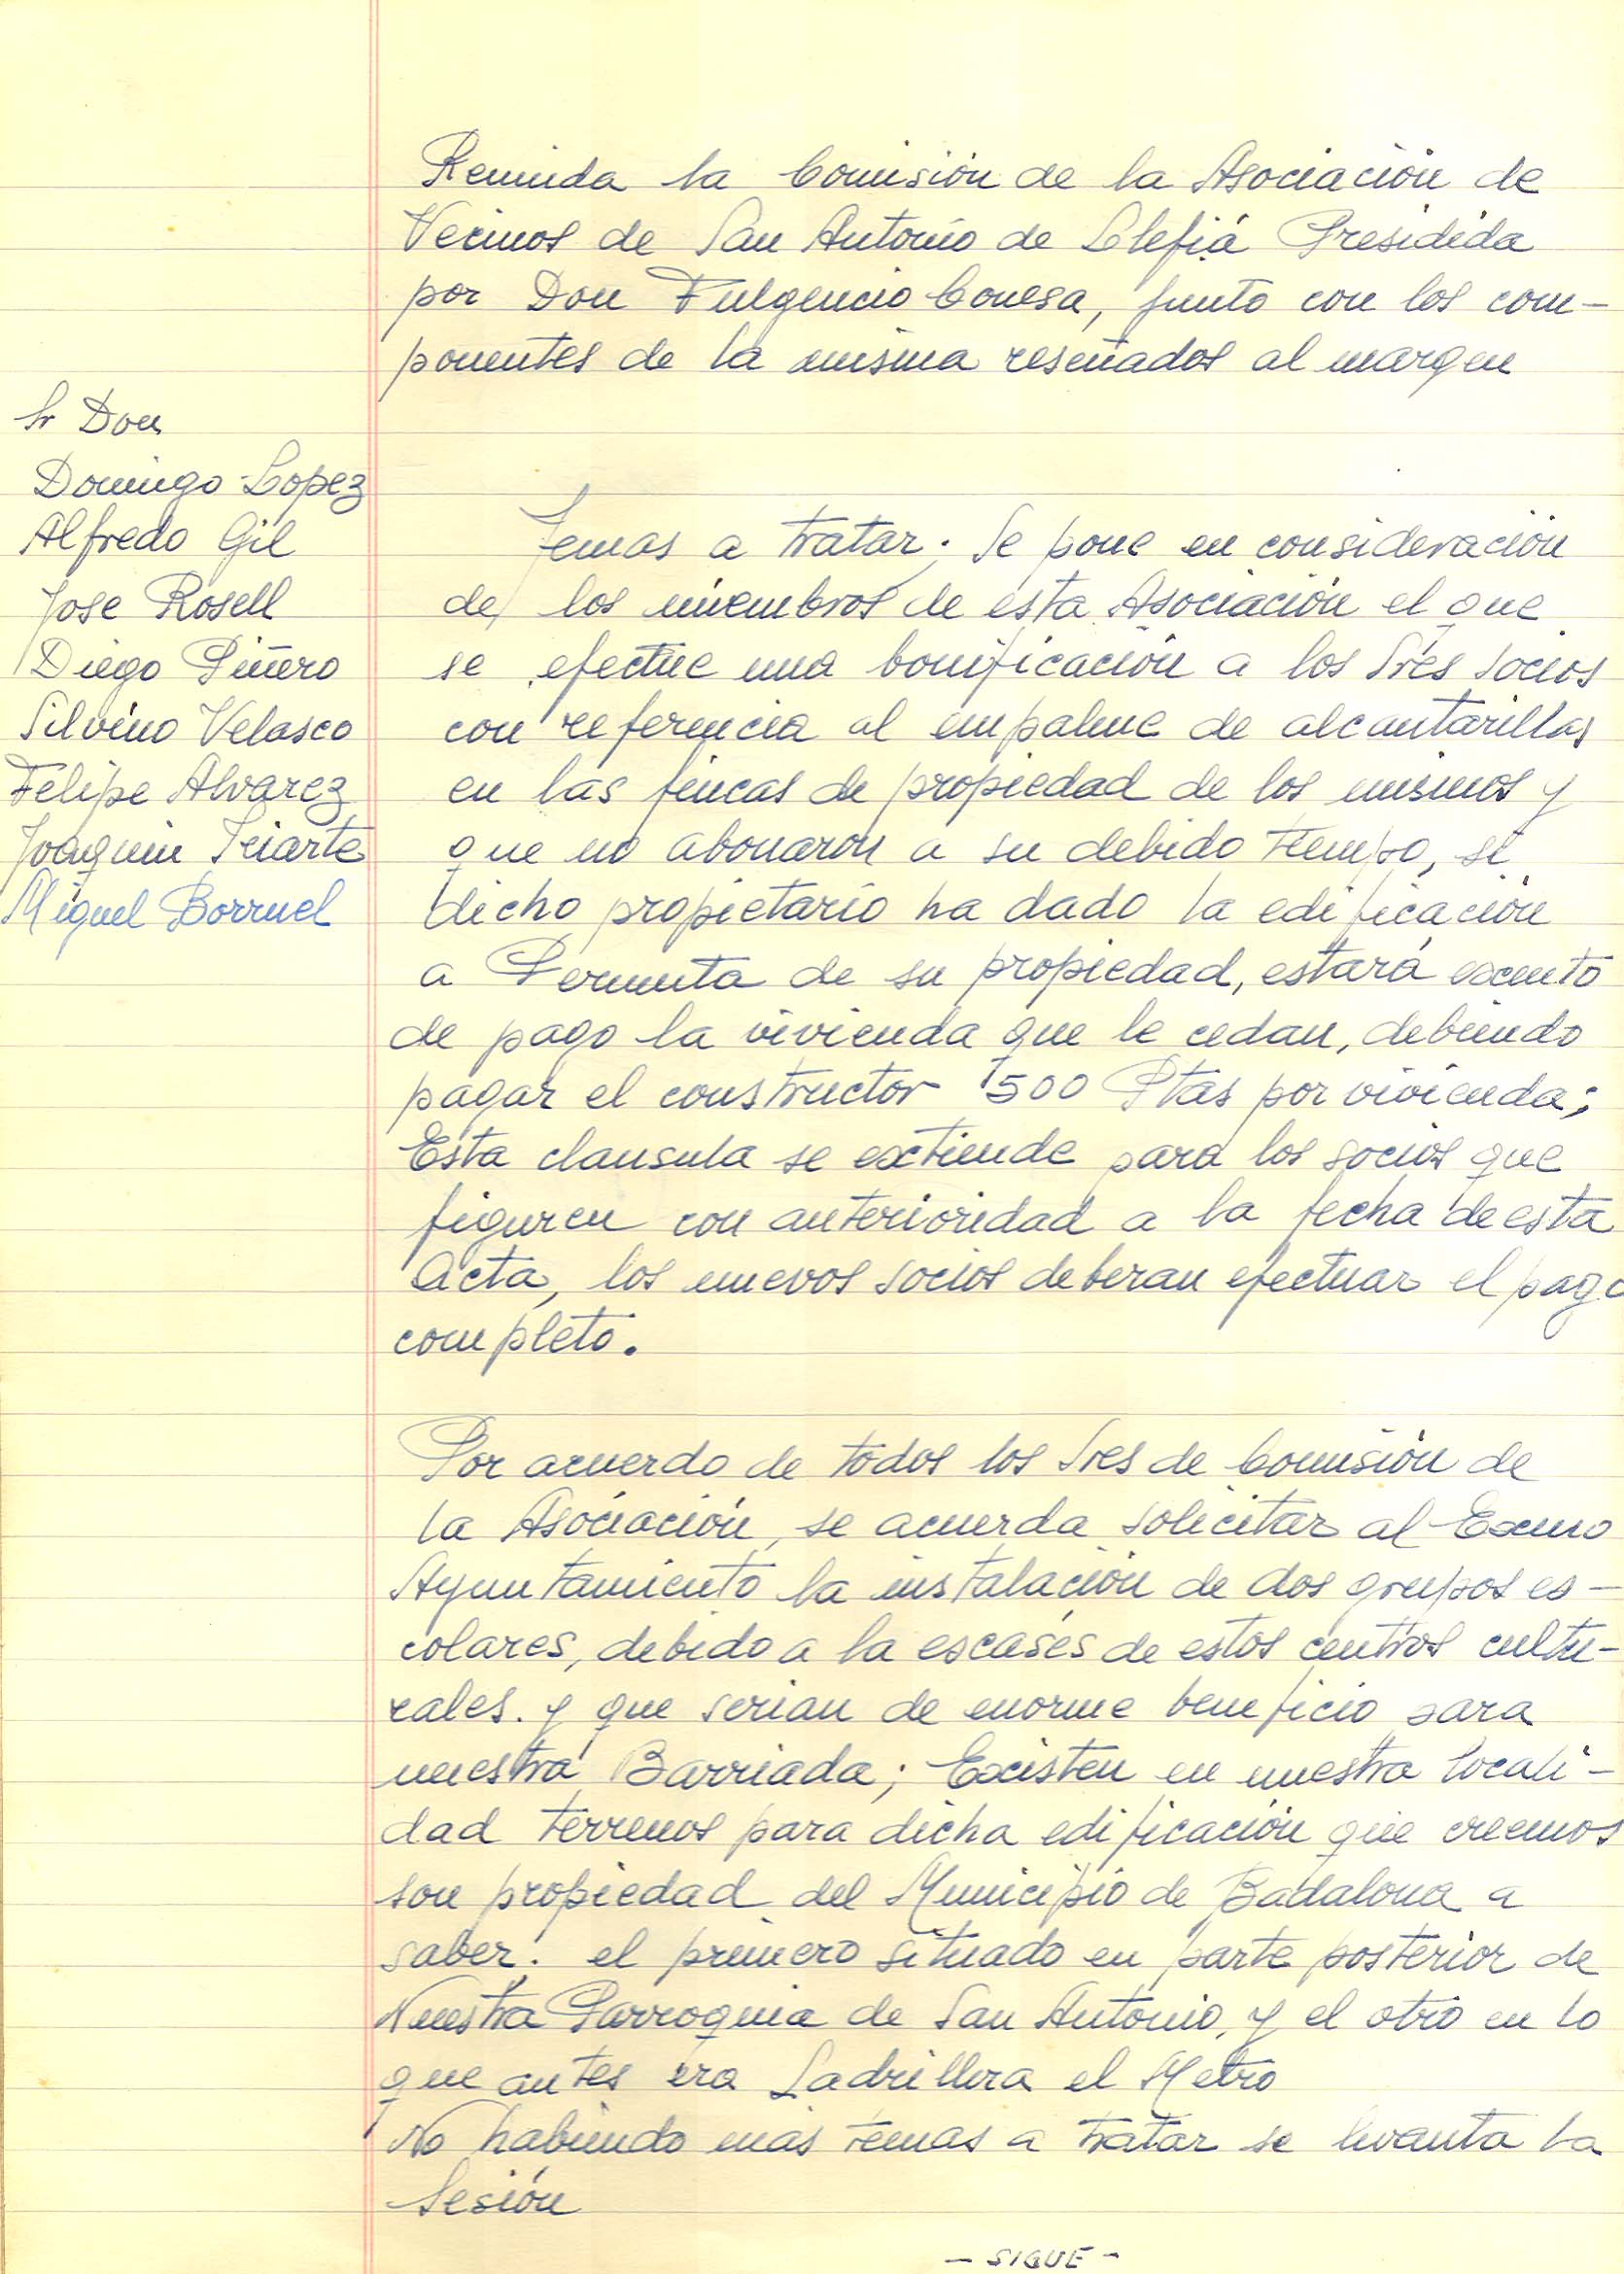 Reunida la Comisión de la Asociación de
Vecinos de San Antonio de Llefiá Presidida
por Don Fulgencio Conesa, junto con los com-
ponentes de la misma reseñados al margen
Sr Don
Domingo Lopez
Alfredo Gil
Jose Rosell
Diego Piñero
Silvino Velasco
Felipe Alvarez
Joaquin Iriarte
Miguel Borruel
Temas a tratar. Se pone en consideración
de los miembros de esta Asociación el que
se efectúe una bonificación a los Sres socios
con referencia al empalme de alcantarillas
en las fincas de propiedad de los mismos y
que no abonaron a su debido tiempo, si
dicho propietario ha dado la edificación
a Permuta de su propiedad, estará exento
de pago la vivienda que le cedan, debiendo
pagar el constructor 1500 Ptas por vivienda;
Esta clausula se extiende para los socios que
figuren con anterioridad a la fecha de esta
Acta, los nuevos socios deberan efectuar el pago
completo.
Por acuerdo de todos los Sres de Comisión de
la Asociación, se acuerda solicitar al Exmo
Ayuntamiento la instalación de dos grupos es-
colares, debido a la escasés de estos centros cultu-
rales. y que serian de enorme beneficio para
nuestra Barriada; Existen en nuestra locali-
dad terrenos para dicha edificación que creemos
son propiedad del Municipio de Badalona a
saber: el primero situado en parte posterior de
Nuestra Parroquia de San Antonio, y el otro en lo
que antes era Ladrillera el Metro
No habiendo más temas a tratar se levanta la
Sesión
- SIGUE -